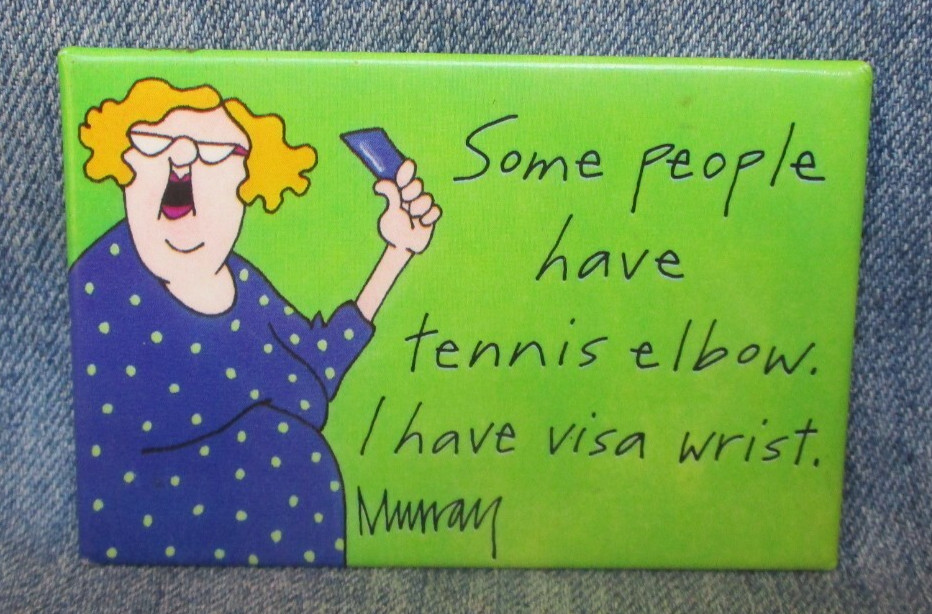 Some people
have
tennis elbow.
I have visa wrist.
Murray